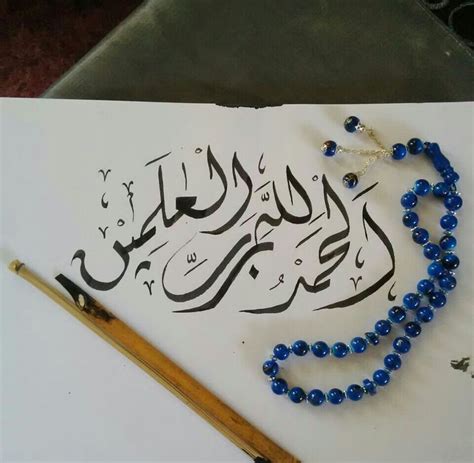 اَلحَمْدُ لِلّهِ رَبِّ العٰلَمِينْ